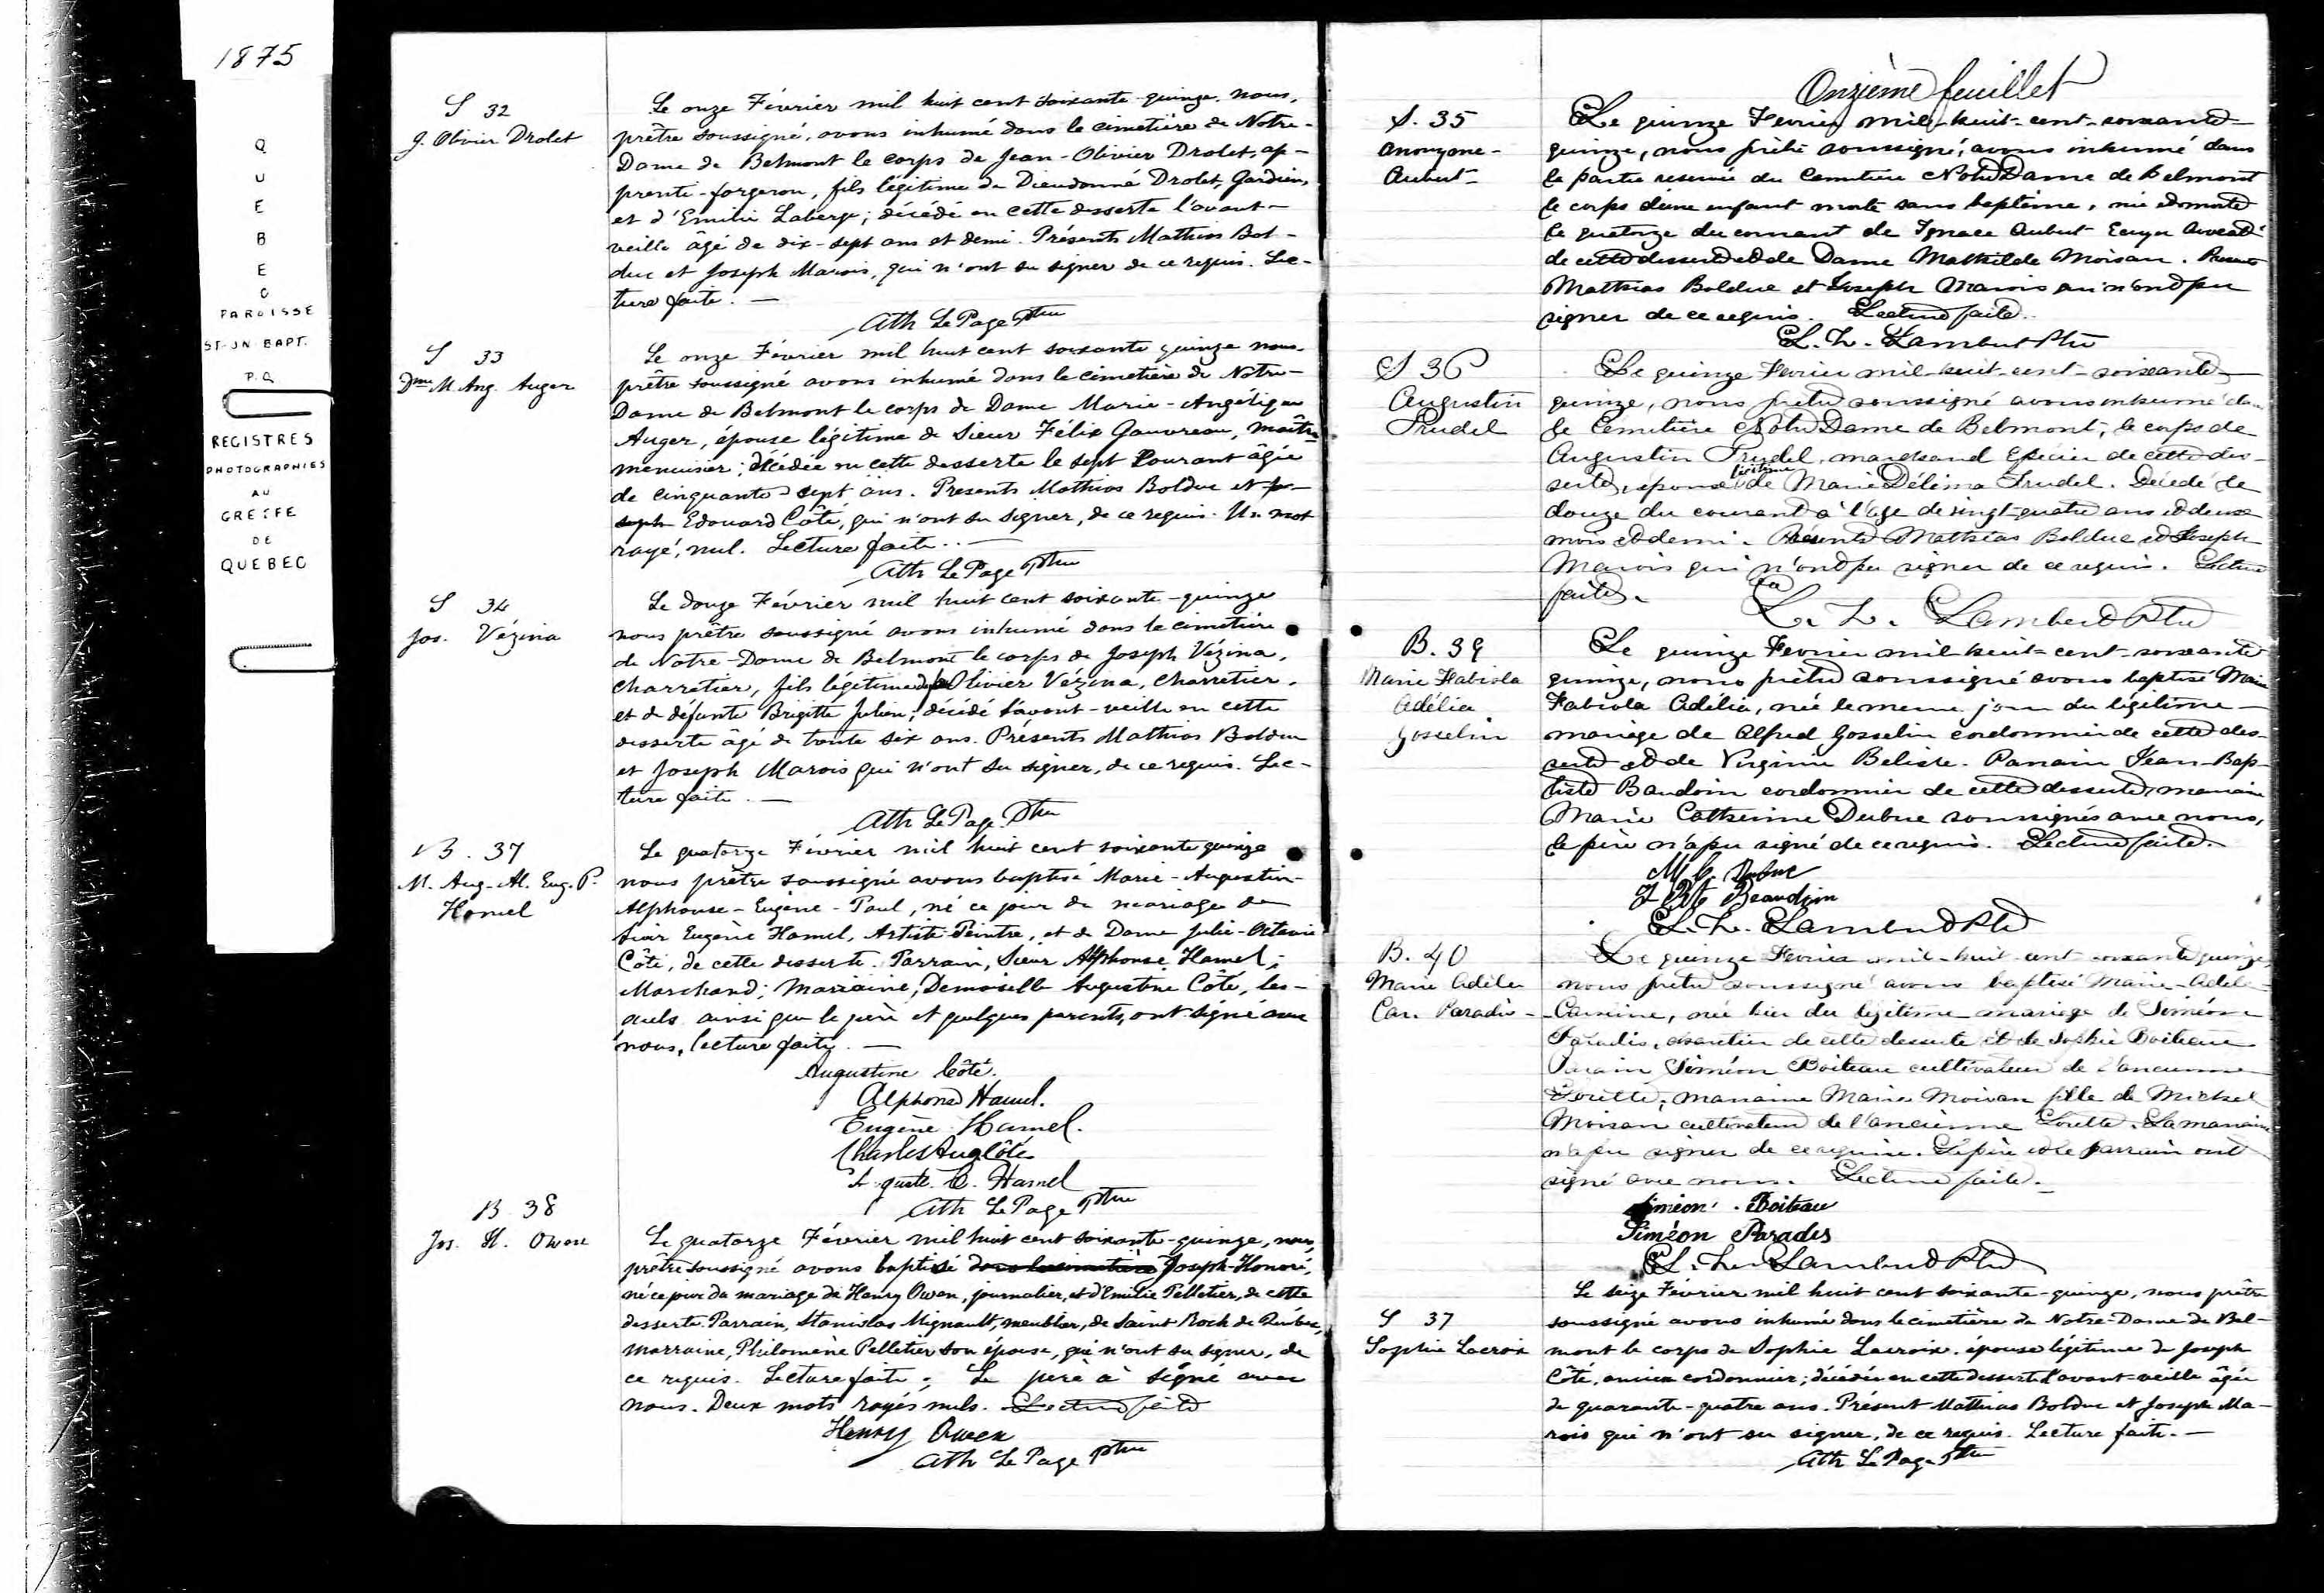 1875
QUEBEC
PAROISSE
ST-JN-BAPT.
P.Q
REGISTRES
PHOTOGRAPHIES
AU
GREFFE
DE
QUEBEC
S 32
J. Olivier Drolet
Le onze Février mil huit cent soixante-quinze, nous,
prêtre soussigné, avons inhumé dans le cimetière de Notre-
Dame de Belmont le corps de Jean-Olivier Drolet, ap-
prenti-forgeron, fils légitime de Dieudonné Drolet, Gardien,
et d'Emilie Laberge; décédé en cette desserte l'avant-
veille âgé de dix-sept ans et demi. Présents Mathias Bol-
duc et Joseph Marois, qui n'ont su signer de ce requis. Lec-
ture faite. —
Ath LePage Ptre
S 33
Dme M. Ang. Auger
Le onze Février mil huit cent soixante quinze nous
prêtre soussigné avons inhumé dans le cimetière de Notre-
Dame de Belmont le corps de Dame Marie-Angélique
Auger, épouse légitime de Sieur Félix Gauvreau, maître
menuisier; décédée en cette desserte le sept courant âgée
de cinquante sept ans. Presents Mathias Bolduc et Jo-
seph Edouard Côté, qui n'ont su signer, de ce requis. Un mot
rayé, nul. Lecture faite. —
Ath LePage Ptre
S 34
Jos. Vézina
Le douze Février mil huit cent soixante-quinze
nous prêtre soussigné avons inhumé dans le cimetière
de Notre-Dame de Belmont le corps de Joseph Vézina,
charretier, fils légitime de feu Olivier Vézina, Charretier,
et de défunte Brigitte Julien; décédé l'avant-veille en cette
desserte âgé de trente six ans. Présents Mathias Bolduc
et Joseph Marois qui n'ont su signer, de ce requis. Lec-
ture faite. —
Ath LePage Ptre
B. 37
M. Aug.-Al. Eug. P.
Hamel
Le quatorze Février mil huit cent soixante quinze
nous prêtre soussigné avons baptisé Marie-Augustin-
Alphonse-Eugène-Paul, né ce jour du mariage de
Sieur Eugène Hamel, Artiste-Peintre, et de Dame Julie-Octavie
Côté, de cette desserte. Parrain, Sieur Alphonse Hamel,
Marchand; Marraine, Demoiselle Augustine Côté, les-
quels ainsi que le père et quelques parents, ont signé avec
nous, lecture faite. —
Augustine Côté.
Alphonse Hamel.
Eugène Hamel.
Charles Aug Côté
Auguste C. Hamel
Ath LePage Ptre
B 38
Jos. H. Owen
Le quatorze Février mil huit cent soixante-quinze, nous,
prêtre soussigné avons baptisé dans le cimetière Joseph-Honoré,
né ce jour du mariage de Henry Owen, journalier, et d'Emilie Pelletier, de cette
desserte. Parrain, Stanislas Mignault, meublier, de Saint Roch de Québec,
marraine, Philomène Pelletier son épouse, qui n'ont su signer, de
ce requis. Lecture faite; Le père a signé avec
nous. Deux mots rayés nuls. Lecture faite
Henry Owen
Ath LePage Ptre
Onzième feuillet
S. 35
Anonyme-
Aubert-
Le quinze Fevrier mil-huit-cent-soixante-
quinze, nous prêtre soussigné, avons inhumé dans
la partie reservée du Cemetière Notre Dame de Belmont
le corps d'une enfant morte sans baptême, née et morte
le quatorze du courant de Ignace Aubert Ecuyer Avocat
de cette desserte et de Dame Mathilde Moisan. Presents
Mathias Bolduc et Joseph Marois qui n'ont pu
signer de ce requis. Lecture faite.
L. H. Lambert Ptre
S 36
Augustin
Trudel
Le quinze Fevrier mil-huit-cent-soixante-
quinze, nous prêtre soussigné avons inhumé dans
le Cemetière Notre Dame de Belmont, le corps de
Augustin Trudel, marchand Epicier de cette des-
serte, epoux légitime de Marie Délima Trudel. Décédé le
douze du courant à l'age de vingt-quatre ans et deux
mois et demi. Présents Mathias Bolduc et Joseph
Marois qui n'ont pu signer de ce requis. Lecture
faite.
L. H. Lambert Ptre
B. 39
Marie Fabiola
Adélia
Gosselin
Le quinze Fevrier mil-huit-cent-soixante
quinze, nous prêtre soussigné avons baptisé Marie
Fabiola Adélia, née le meme jour du légitime
mariage de Alfred Gosselin cordonnier de cette des-
serte et de Virginie Belisle. Parrain Jean-Bap-
tiste Baudoin cordonnier de cette desserte, marraine
Marie Catherine Dubuc soussignés avec nous,
le père n'a pu signé de ce requis. Lecture faite.
M C. Dubuc
J Bte Beaudoin
L. H. Lambert Ptre
B. 40
Marie Adèle
Car. Paradis-
Le quinze Fevrier mil-huit-cent-soixante quinze,
nous prêtre soussigné avons baptisé Marie-Adèle-
née hier du légitime mariage de Siméon
Paradis, charretier de cette desserte et de Sophie Boiteau
Parain Siméon Boiteau cultivateur de l'ancienne
Lorette, marraine Marie Moisan fille de Michel
Moisan cultivateur de l'ancienne Lorette. La marraine
n'a pu signer de ce requise. Le père et le parrain ont
signé avec nous. Lecture faite.
Siméon Boiteau
Siméon Paradis
L. H. Lambert Ptre
S 37
Sophie Lacroix
Le seize Février mil huit cent soixante-quinze, nous prêtre
soussigné avons inhumé dans le cimetière de Notre-Dame de Bel-
mont le corps de Sophie Lacroix, épouse légitime de Joseph
Côté, ancien cordonnier; décédée en cette desserte l'avant-veille âgée
de quarante-quatre ans. Présent Mathias Bolduc et Joseph Ma-
rois qui n'ont su signer, de ce requis. Lecture faite. —
Ath LePage Ptre